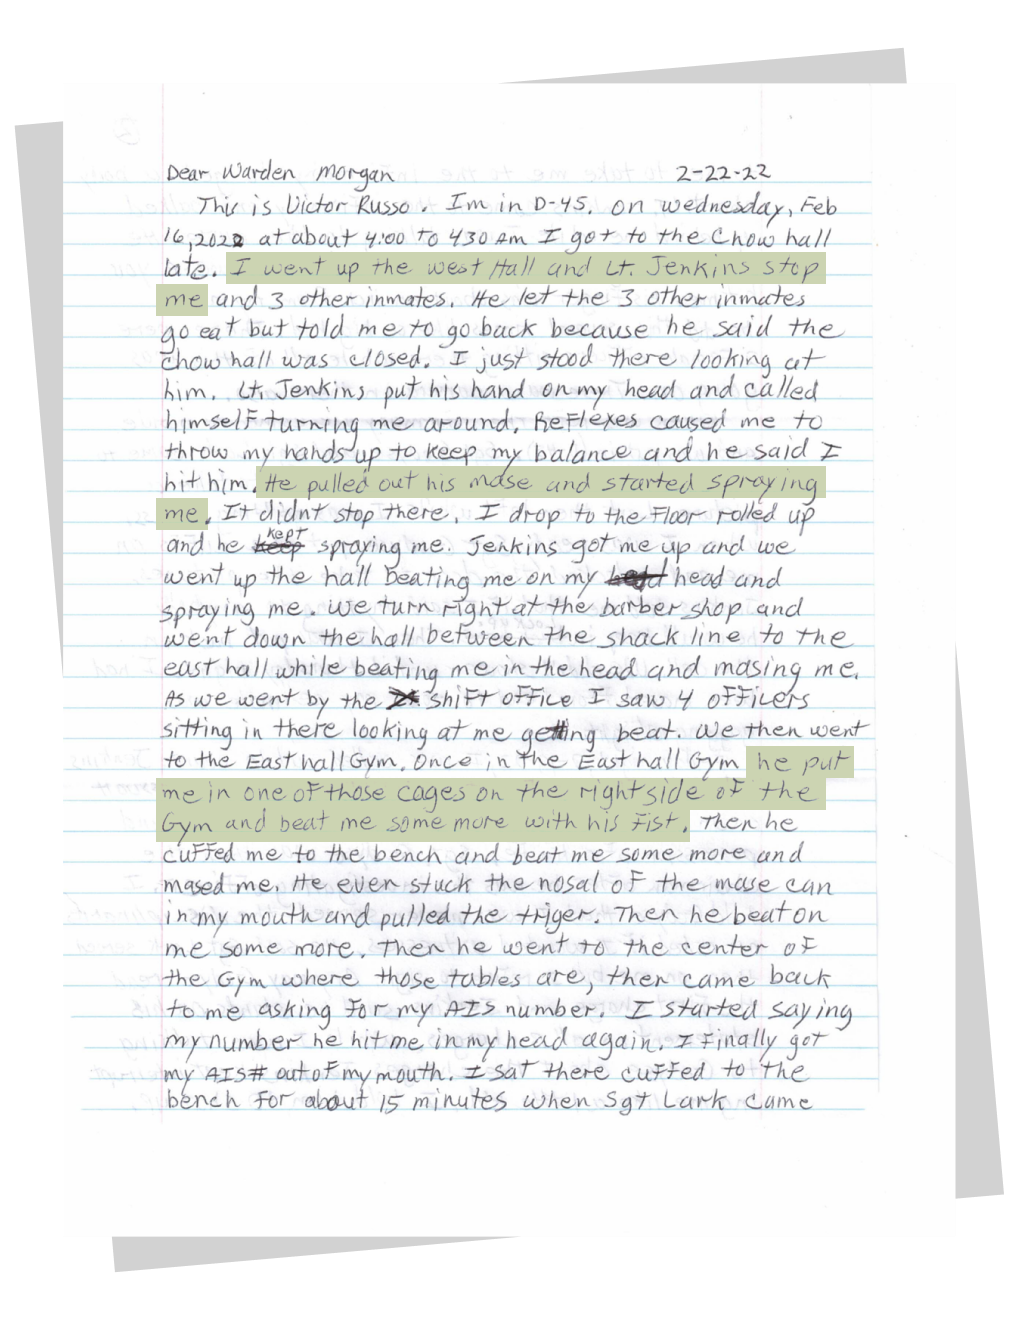 Dear Warden Morgan 2-22-22
This is Victor Russo. Im in D-45. on wednesday, Feb
16, 2022 at about 4:00 To 430 Am I got to the Chow hall
late. I went up the west Hall and Lt. Jenkins stop
me and 3 other inmates. He let the 3 other inmates
go eat but told me to go back because he said the
chow hall was closed. I just stood there looking at
him. Lt. Jenkins put his hand on my head and called
himself turning me around. Reflexes caused me to
throw my hands up to keep my balance and he said I
hit him. He pulled out his mase and started spraying
me. It didnt stop there. I drop to the Floor rolled up
and he kept spraying me. Jenkins got me up and we
went up the hall beating me on my head and
spraying me. We turn right at the barber shop and
went down the hall between the shack line to the
east hall while beating me in the head and masing me.
As we went by the shift office I saw 4 officers
sitting in there looking at me getting beat. We then went
to the East hall Gym. Once in the East hall Gym he put
me in one of those cages on the right side of the
Gym and beat me some more with his fist. Then he
cuffed me to the bench and beat me some more and
mased me. He even stuck the nosal of the mase can
in my mouth and pulled the triger. Then he beat on
me some more. Then he went to the center of
the Gym where those tables are, then came back
to me asking for my AIS number. I started saying
my number he hit me in my head again. I finally got
my AIS# out of my mouth. I sat there cuffed to the
bench for about 15 minutes when Sgt Lark came